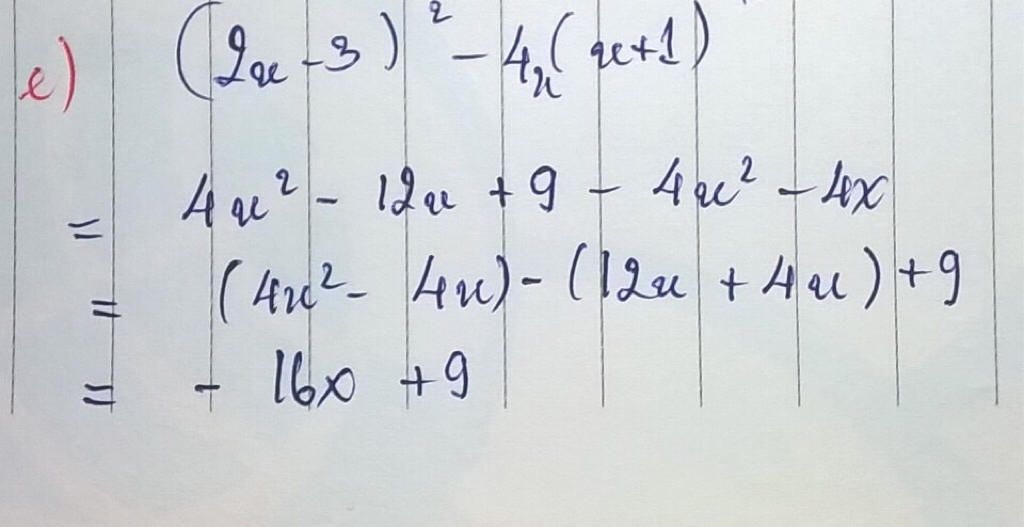 e) (2x - 3)² - 4x(x+1)
= 4x² - 12x + 9 - 4x² - 4x
= (4x² - 4x) - (12x + 4x) + 9
= - 16x + 9